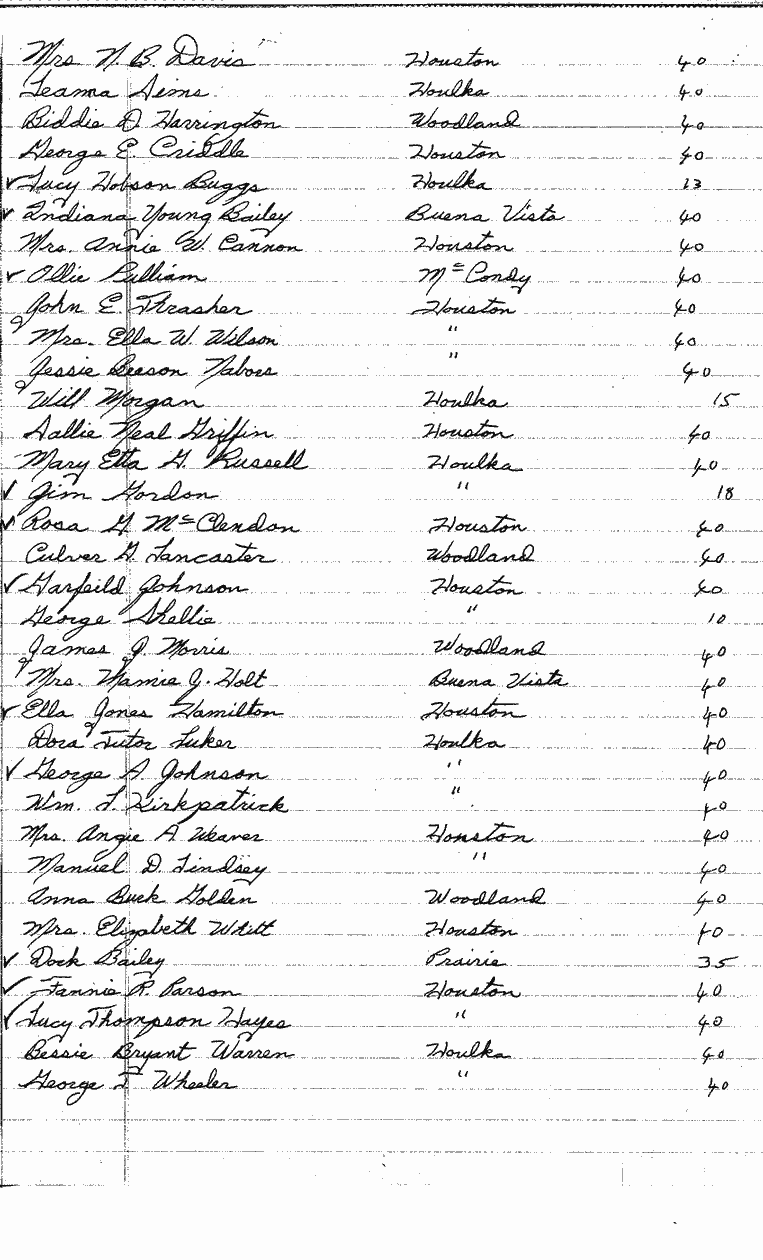 Mrs N. B. Davis Houston 40
Leama Sims Houlka 40
Biddie D. Harrington Woodland 40
George E. Criddle Houston 40
✓ Lucy Hobson Buggs Houlka 13
✓ Indiana Young Bailey Buena Vista 40
Mrs. Annie W. Cannon Houston 40
✓ Ollie Pulliam McCondy 40
John E. Thrasher Houston 40
Mrs. Ella W. Wilson " 40
Jessie Beason Nabors " 40
Will Morgan Houlka 15
Sallie Neal Griffin Houston 40
Mary Etta G. Russell Houlka 40
✓ Jim Gordon " 18
✓ Rosa G McClendon Houston 40
Culver G. Lancaster Woodland 40
✓ Garfeild Johnson Houston 40
George Shellie " 10
James J. Morris Woodland 40
Mrs. Mamie J. Holt Buena Vista 40
✓ Ella Jones Hamilton Houston 40
Dora Tutor Luker Houlka 40
✓ George A. Johnson " 40
Wm. L. Kirkpatrick " 40
Mrs. Angie A Weaver Houston 40
Manuel D. Lindsey " 40
Anna Buck Golden Woodland 40
Mrs. Elizabeth Whitt Houston 40
✓ Dock Bailey Prairie 35
✓ Fannie R. Parson Houston 40
✓ Lucy Thompson Hayes " 40
Bessie Bryant Warren Houlka 40
George T. Wheeler " 40